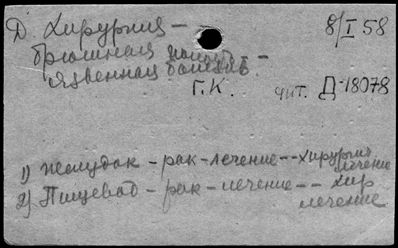 Д. Хирургия - 8/I 58
брюшная полость -
язвенная болезнь
Г.К. чит. Д-18078
1) Желудок - рак - лечение -- хирургия лечение
2) Пищевод - рак - лечение -- хир лечение